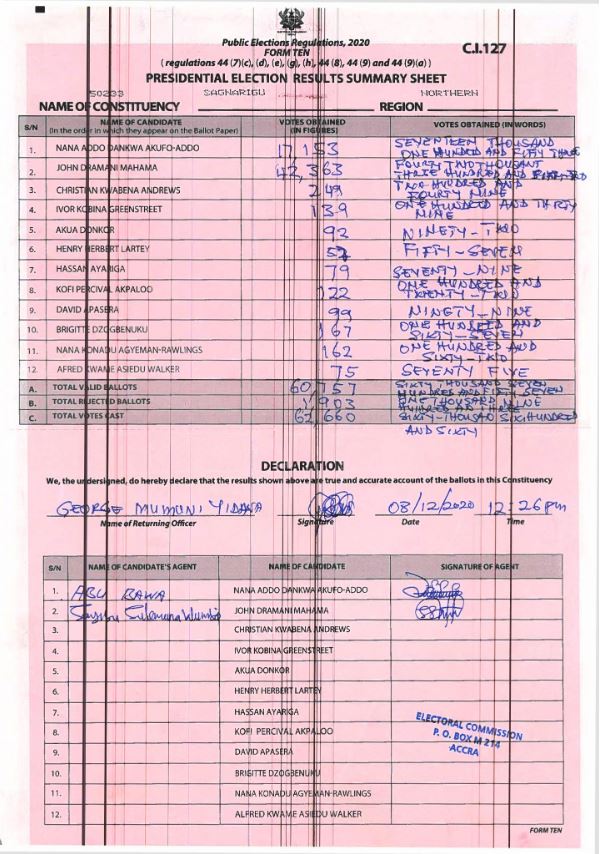 Public Elections Regulations, 2020
FORM TEN
C.I.127
( regulations 44 (7)(c), (d), (e), (g), (h), 44 (8), 44 (9) and 44 (9)(a) )
PRESIDENTIAL ELECTION RESULTS SUMMARY SHEET
50233 SAGNARIGU NORTHERN
NAME OF CONSTITUENCY REGION
S/N NAME OF CANDIDATE (In the order in which they appear on the Ballot Paper) VOTES OBTAINED (IN FIGURES) VOTES OBTAINED (IN WORDS)
1. NANA ADDO DANKWA AKUFO-ADDO 17,153 SEVENTEEN THOUSAND ONE HUNDRED AND FIFTY THREE
2. JOHN DRAMANI MAHAMA 42,363 FOURTY TWO THOUSANT THREE HUNDRED AND
3. CHRISTIAN KWABENA ANDREWS 249 TWO HUNDRED AND FOURTY NINE
4. IVOR KOBINA GREENSTREET 139 ONE HUNDRED AND THIRTY NINE
5. AKUA DONKOR 92 NINETY-TWO
6. HENRY HERBERT LARTEY 57 FIFTY-SEVEN
7. HASSAN AYARIGA 79 SEVENTY-NINE
8. KOFI PERCIVAL AKPALOO 122 ONE HUNDRED AND TWENTY-TWO
9. DAVID APASERA 99 NINETY-NINE
10. BRIGITTE DZOGBENUKU 167 ONE HUNDRED AND SIXTY-SEVEN
11. NANA KONADU AGYEMAN-RAWLINGS 162 ONE HUNDRED AND SIXTY-TWO
12. AFRED KWAME ASIEDU WALKER 75 SEVENTY FIVE
A. TOTAL VALID BALLOTS 60,757 SIXTY THOUSAND SEVEN HUNDRED AND FIFTY SEVEN
B. TOTAL REJECTED BALLOTS 1,903 ONE THOUSAND NINE HUNDRED AND THREE
C. TOTAL VOTES CAST 62,660 SIXTY-THOUSAND SIX HUNDRED AND SIXTY
DECLARATION
We, the undersigned, do hereby declare that the results shown above are true and accurate account of the ballots in this Constituency
GEORGE MUMUNI YIDANA 08/12/2020 12:26pm
Name of Returning Officer Signature Date Time
S/N NAME OF CANDIDATE'S AGENT NAME OF CANDIDATE SIGNATURE OF AGENT
1. ABU BAWA NANA ADDO DANKWA AKUFO-ADDO
2. JOHN DRAMANI MAHAMA
3. CHRISTIAN KWABENA ANDREWS
4. IVOR KOBINA GREENSTREET
5. AKUA DONKOR
6. HENRY HERBERT LARTEY
7. HASSAN AYARIGA
8. KOFI PERCIVAL AKPALOO
9. DAVID APASERA
10. BRIGITTE DZOGBENUKU
11. NANA KONADU AGYEMAN-RAWLINGS
12. ALFRED KWAME ASIEDU WALKER
ELECTORAL COMMISSION
P. O. BOX M 214
ACCRA
FORM TEN